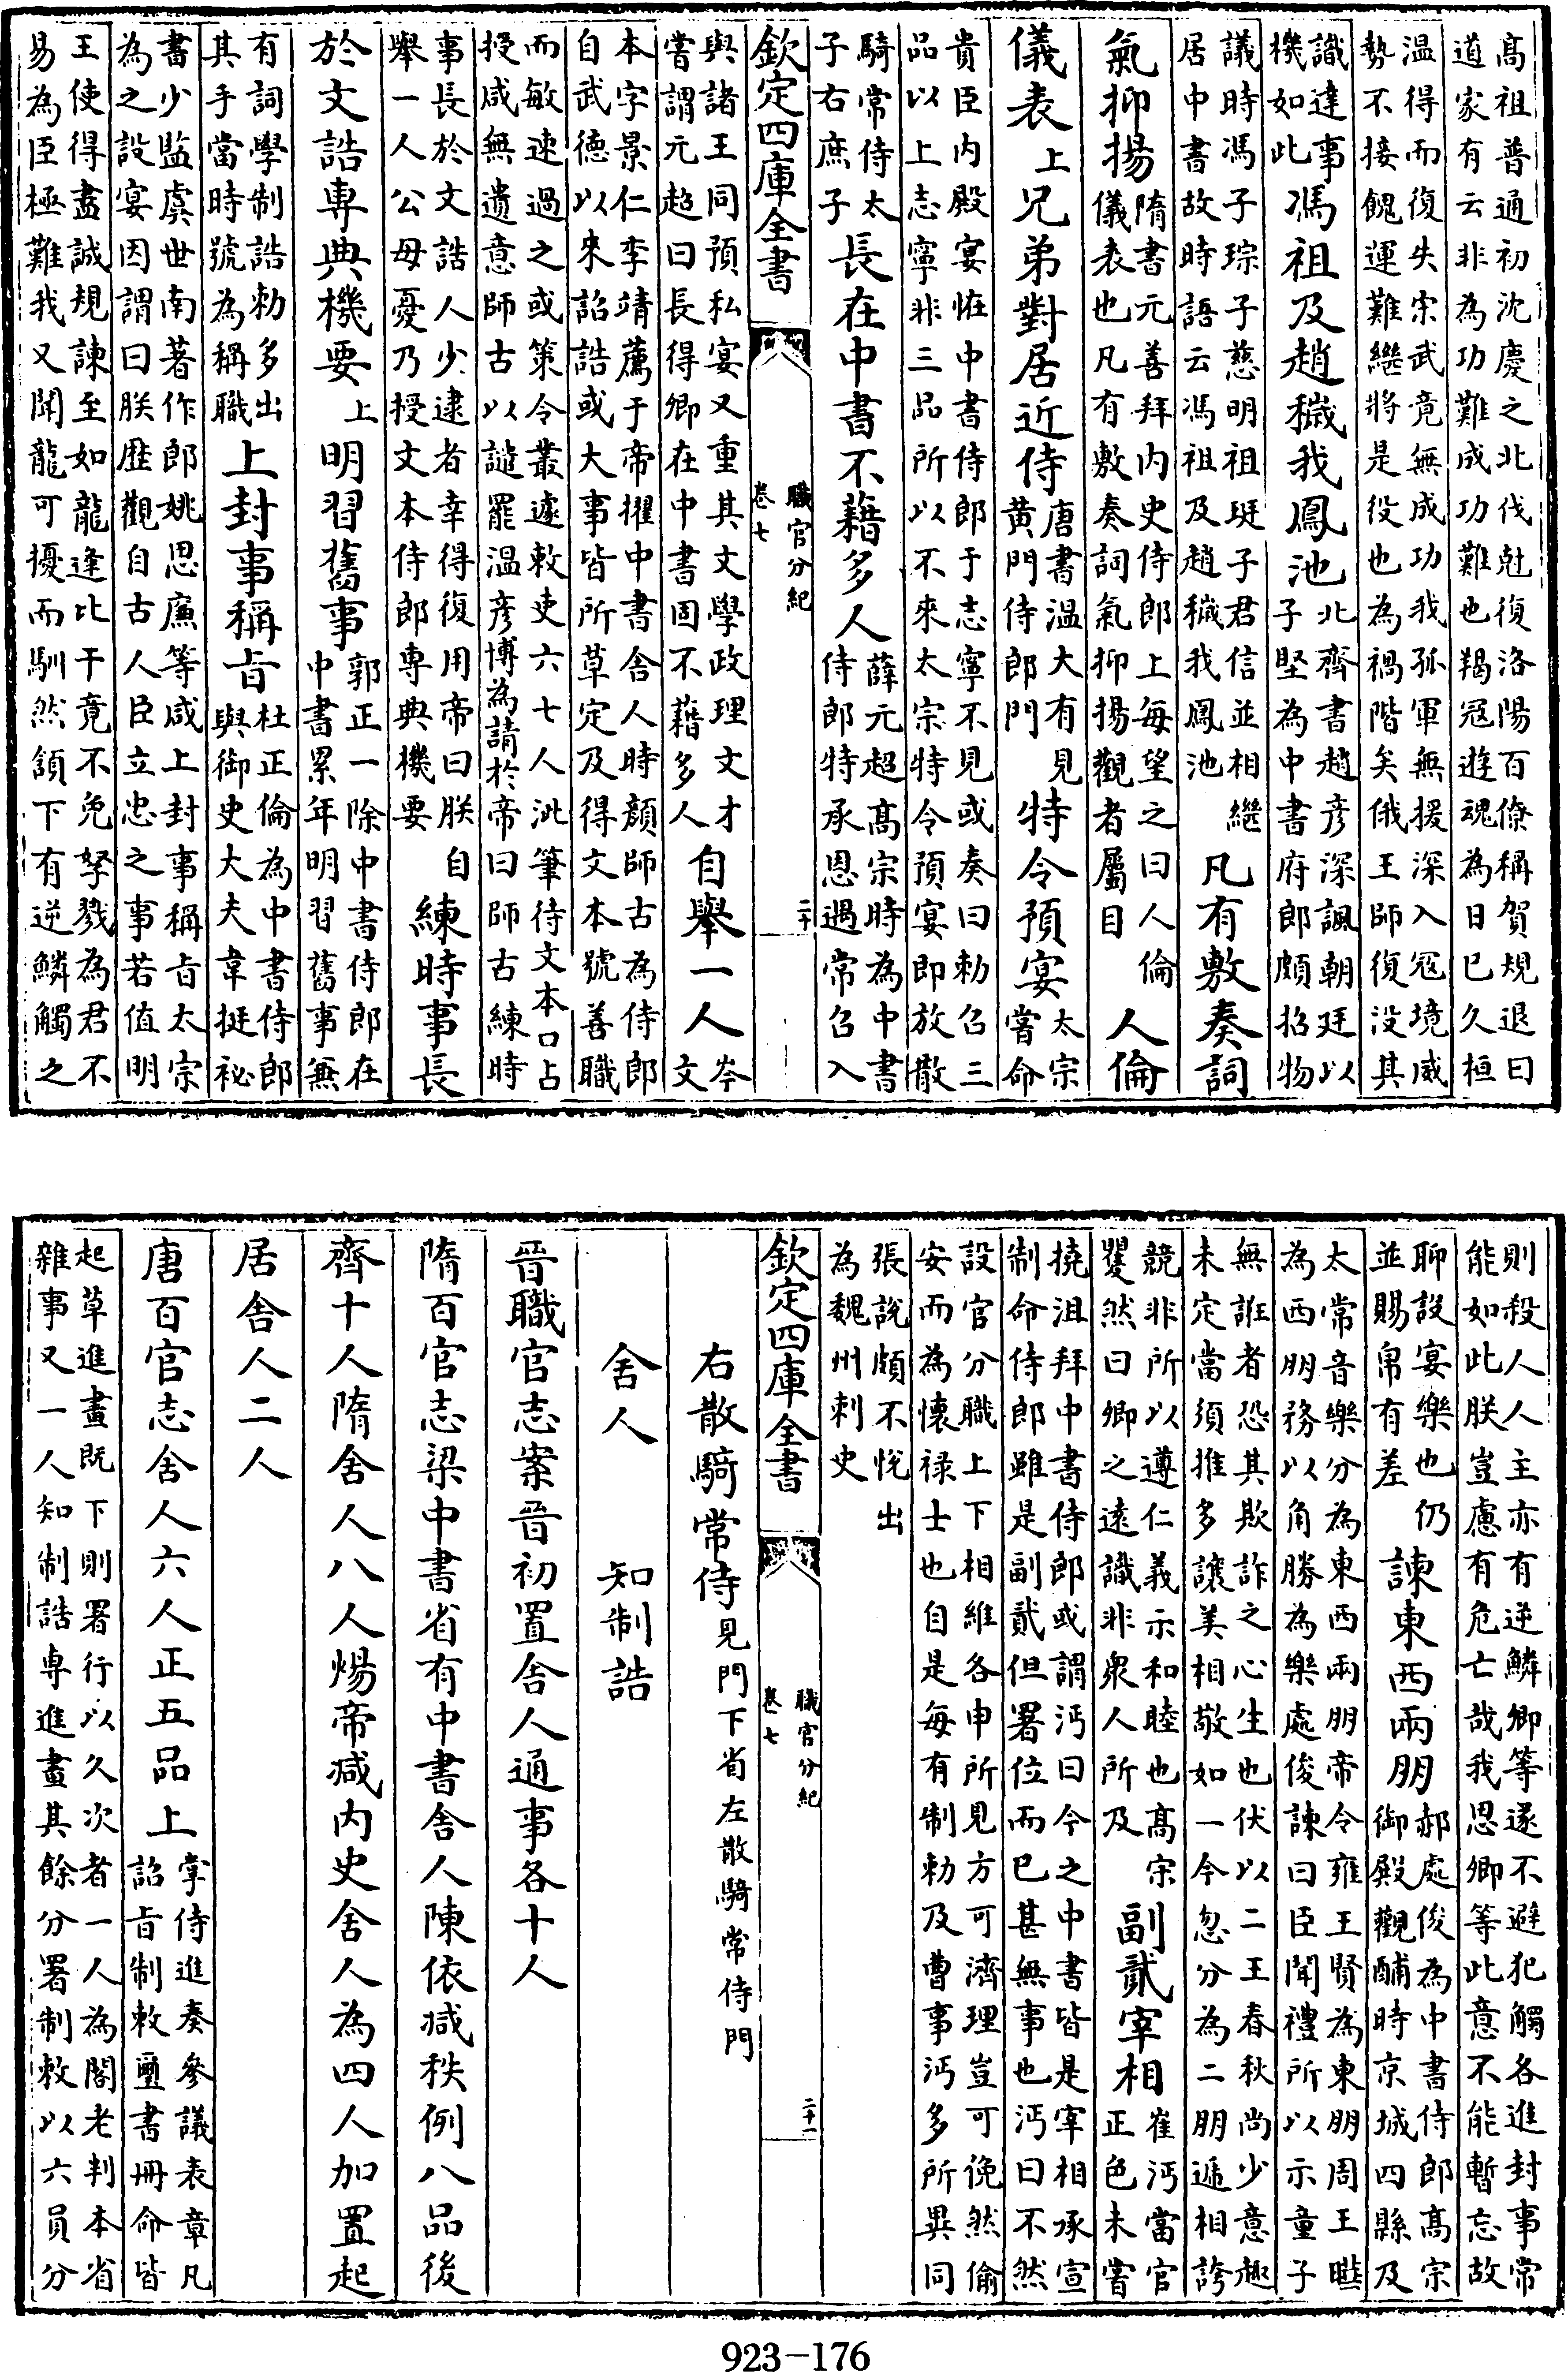 高祖普通初沈慶之北伐尅復洛陽百僚稱賀規退曰
道家有云非為功難成功難也羯冦遊魂為日已久桓
溫得而復失宋武竟無成功我孤軍無援深入冦境威
勢不接餽運難繼將是役也為禍階矣俄王師復没其
識達事
機如此
馮祖及趙穢我鳳池
北齊書趙彦深諷朝廷以
子堅為中書府郎頗招物
議時馮子琮子慈明祖珽子君信並相繼
居中書故時語云馮祖及趙穢我鳳池
凡有敷奏詞
氣抑揚
隋書元善拜内史侍郎上每望之曰人倫
儀表也凡有敷奏詞氣抑揚觀者屬目
人倫
儀表
上
兄弟對居近侍
唐書溫大有見
黄門侍郎門
特令預宴
太宗
嘗命
貴臣内殿宴恠中書侍郎于志寧不見或奏曰勅召三
品以上志寧非三品所以不來太宗特令預宴即放散
騎常侍太
子右庶子
長在中書不藉多人
薛元超髙宗時為中書
侍郎特承恩遇常召入
欽定四庫全書
職官分紀
卷七
二十
與諸王同預私宴又重其文學政理文才
嘗謂元超曰長得卿在中書固不藉多人
自舉一人
岑
文
本字景仁李靖薦于帝擢中書舍人時顔師古為侍郎
自武德以來詔誥或大事皆所草定及得文本號善職
而敏速過之或策令叢遽敕吏六七人泚筆待文本口占
授咸無遺意師古以譴罷溫彦博為請於帝曰師古練時
事長於文誥人少逮者幸得復用帝曰朕自
舉一人公母憂乃授文本侍郎專典機要
練時事長
於文誥專典機要
上
明習舊事
郭正一除中書侍郎在
中書累年明習舊事無
有詞學制誥勅多出
其手當時號為稱職
上封事稱㫖
杜正倫為中書侍郎
與御史大夫韋挺祕
書少監虞世南著作郎姚思㢘等咸上封事稱㫖太宗
為之設宴因謂曰朕歴觀自古人臣立忠之事若值明
王使得盡誠規諫至如龍逄比干竟不免孥戮為君不
易為臣極難我又聞龍可擾而馴然頷下有逆鱗觸之
則殺人人主亦有逆鱗卿等遂不避犯觸各進封事常
能如此朕豈慮有危亡哉我思卿等此意不能暫忘故
聊設宴樂也仍
並賜帛有差
諫東西兩朋
郝處俊為中書侍郎髙宗
御殿觀酺時京城四縣及
太常音樂分為東西兩朋帝令雍王賢為東朋周王㬢
為西朋務以角勝為樂處俊諫曰臣聞禮所以示童子
無誑者恐其欺詐之心生也伏以二王春秋尚少意趣
未定當須推多讓美相敬如一今忽分為二朋遞相誇
競非所以遵仁義示和睦也髙宗
矍然曰卿之遠識非衆人所及
副貳宰相
崔沔當官
正色未嘗
撓沮拜中書侍郎或謂沔曰今之中書皆是宰相承宣
制命侍郎雖是副貳但署位而已甚無事也沔曰不然
設官分職上下相維各申所見方可濟理豈可俛然偷
安而為懐禄士也自是每有制勅及曹事沔多所異同
張說頗不悦出
為魏州刺史
欽定四庫全書
職官分紀
卷七
二十一
右散騎常侍
見門下省左散騎常侍門
舍人　知制誥
晉職官志案晉初置舍人通事各十人
隋百官志梁中書省有中書舍人陳依减秩例八品後
齊十人隋舍人八人煬帝减内史舍人為四人加置起
居舍人二人
唐百官志舍人六人正五品上
掌侍進奏參議表章凡
詔㫖制敕璽書冊命皆
起草進畫既下則署行以久次者一人為閣老判本省
雜事又一人知制誥専進畫其餘分署制敕以六員分
923-176